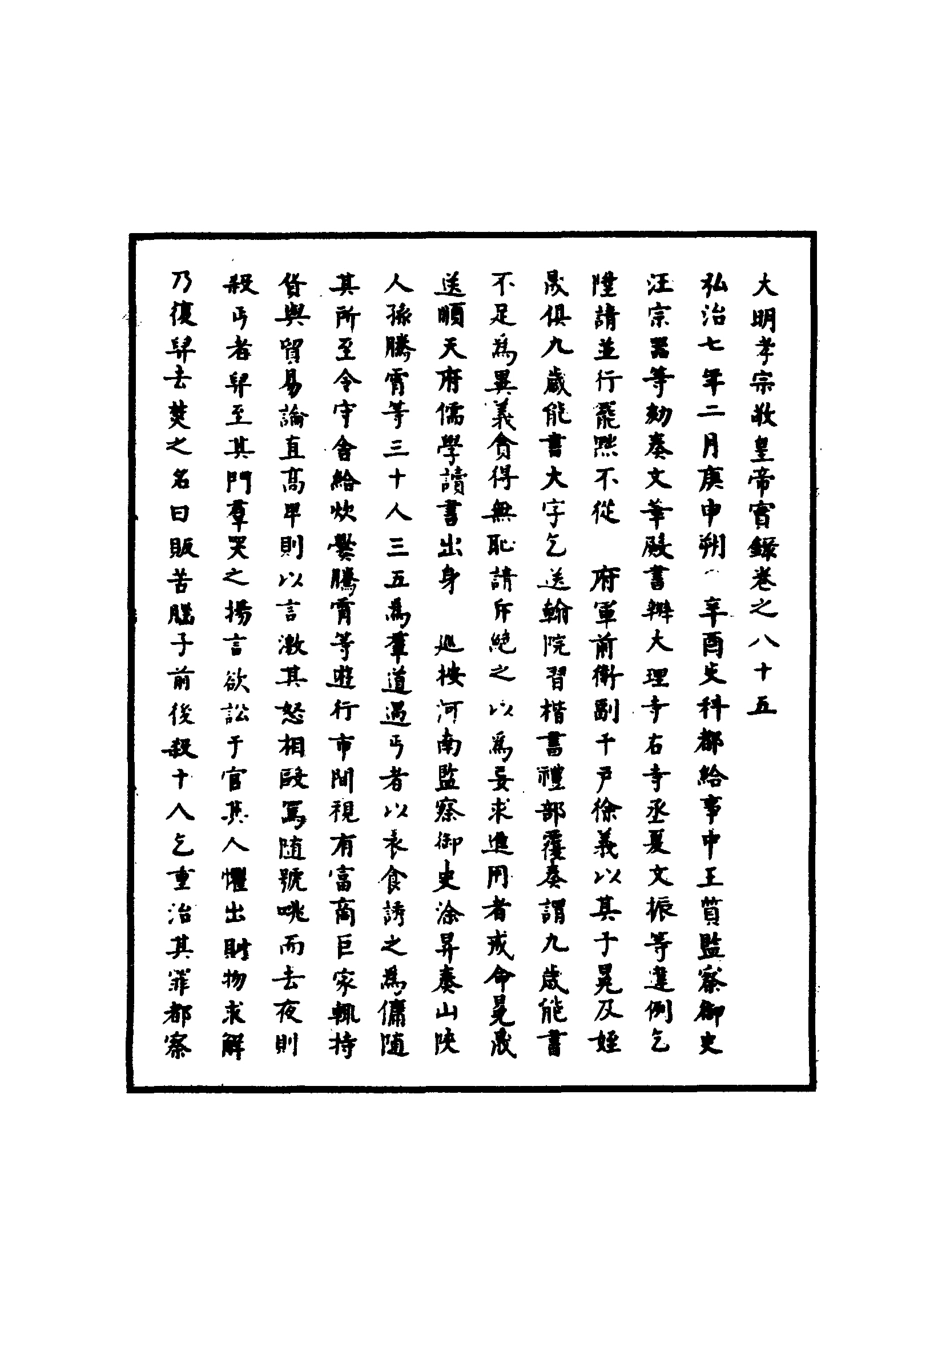 大明孝宗敬皇帝實錄卷之八十五
弘治七年二月庚申朔　辛酉吏科都給事中王質監察御史
汪宗器等劾奏文華殿書辦大理寺右寺丞夏文振等違例乞
陞請並行罷黜不從　府軍前衛副千戶徐義以其子晃及姪
晟俱九歲能書大字乞送翰院習楷書禮部覆奏謂九歲能書
不足為異義貪得無恥請斥絕之以為妄求進用者戒命晃晟
送順天府儒學讀書出身　巡按河南監察御史涂昇奏山陝
人孫騰霄等三十人三五為羣道過丐者以衣食誘之為傭隨
其所至令守舍給炊爨騰霄等遊行市間視有富商巨家輒持
貨與貿易論直高卑則以言激其怒相毆罵隨號咷而去夜則
殺丐者舁至其門羣哭之揚言欲訟于官其人懼出財物求解
乃復舁去焚之名曰販苦腦子前後殺十人乞重治其罪都察